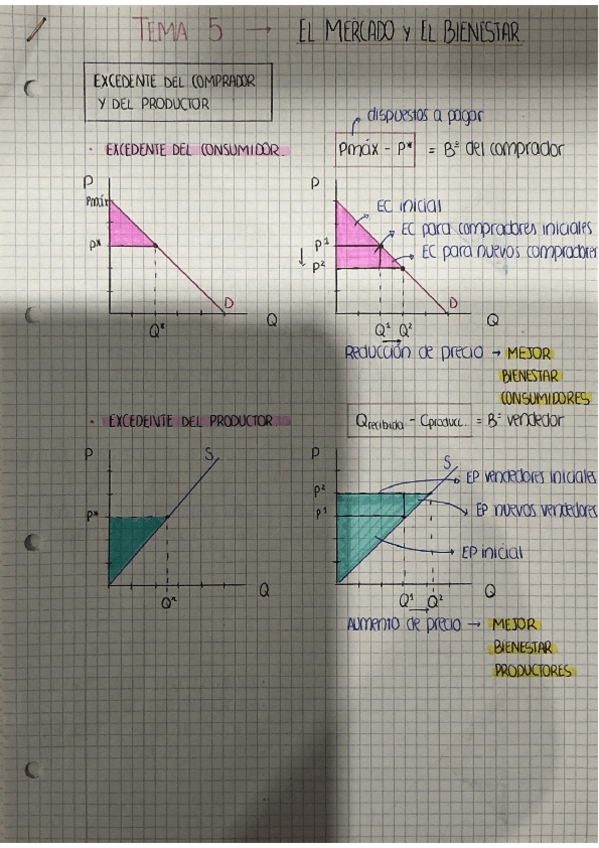 TEMA 5 → EL MERCADO Y EL BIENESTAR
EXCEDENTE DEL COMPRADOR
Y DEL PRODUCTOR
dispuestos a pagar
· EXCEDENTE DEL CONSUMIDOR.
Pmáx - P* = Bº del comprador
P
Pmáx
P*
D
Q*
Q
P
EC inicial
EC para compradores iniciales
EC para nuevos compradores
P¹
↓ P²
D
Q¹ Q²
Q
Reducción de precio → MEJOR
BIENESTAR
CONSUMIDORES
· EXCEDEINTE DEL PRODUCTOR.
Qrecibida - Cproducc. = Bº vendedor
P
S
P*
Q*
Q
P
S
EP vendedores iniciales
P²
EP nuevos vendedores
P¹
EP inicial
Q¹ Q²
Q
Aumento de precio → MEJOR
BIENESTAR
PRODUCTORES